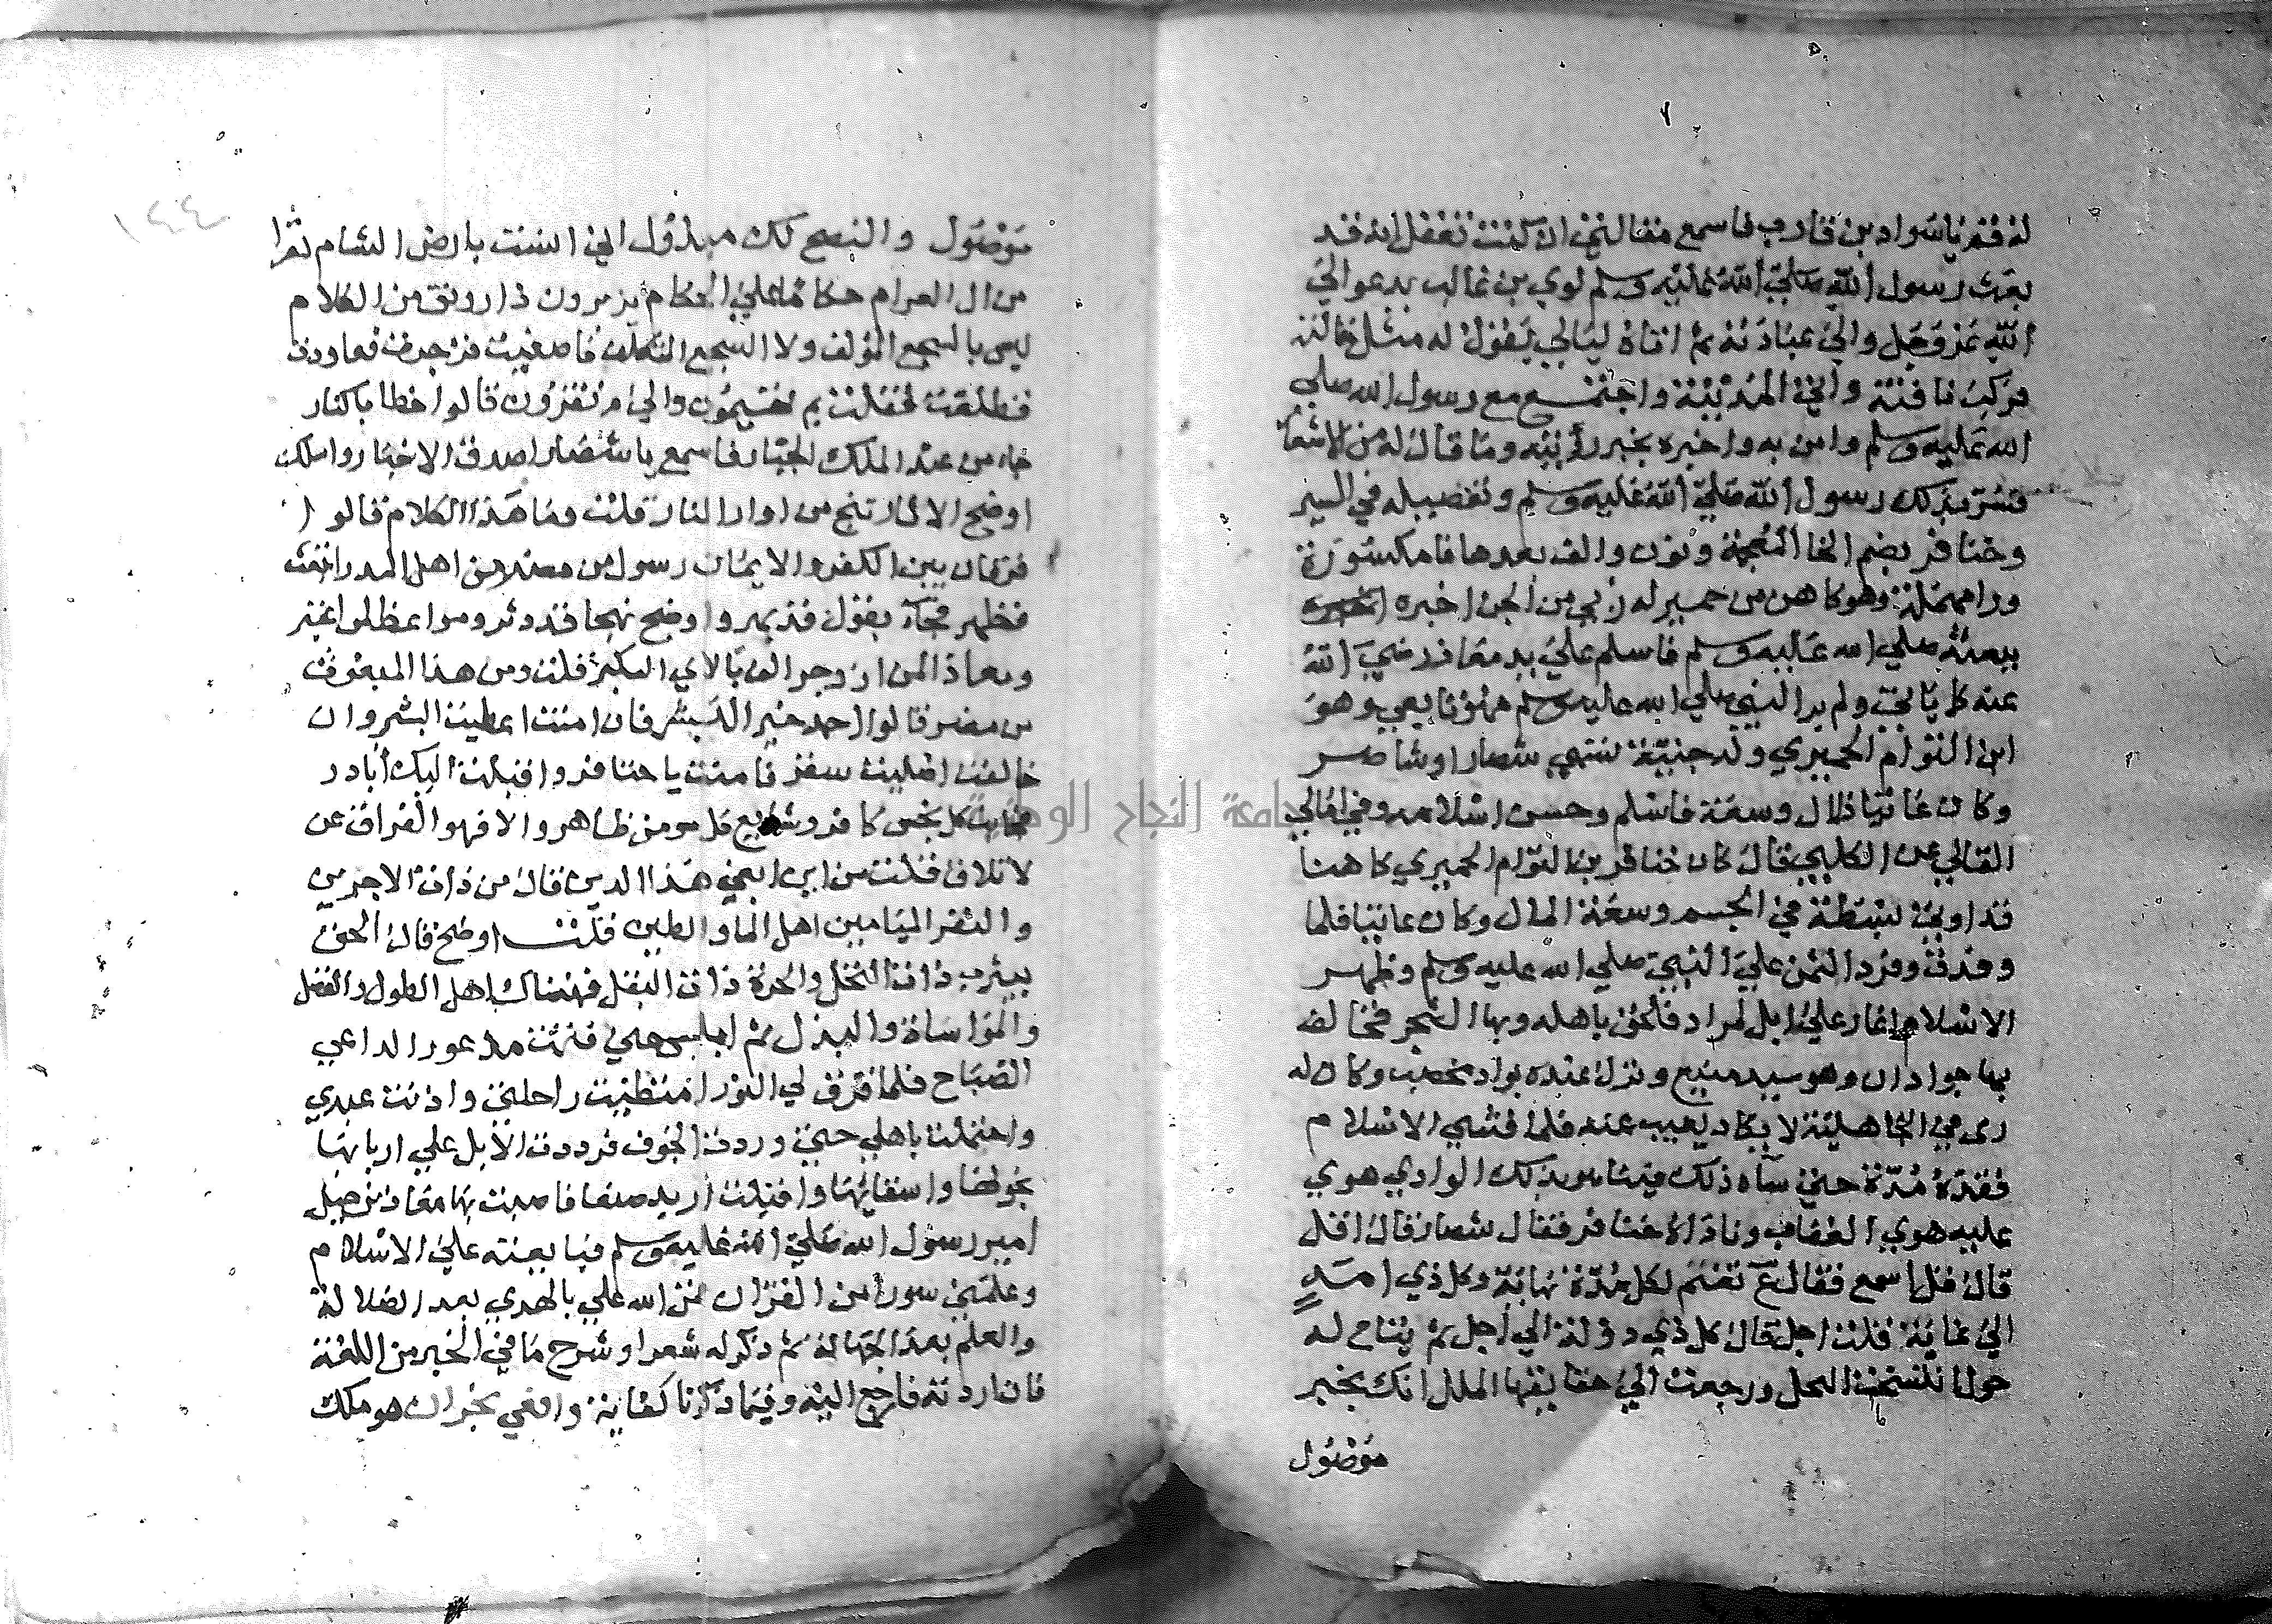 له قم يا سواد بن قارب فاسمع مقالتي ان كنت تعقل انه قد
بعث رسول الله صلي الله عليه وسلم لوي بن غالب يدعوا الي
الله عز وجل والي عبادته ثم اتاه ليالي يقول له مثل ذالك
فركب ناقته واتي المدينة واجتمع مع رسول الله صلي
الله عليه وسلم وامن به واخبره بخبر رئيه وما قال له من الاشعار
فسر بذلك رسول الله صلي الله عليه وسلم وتفصيله في السير
وخنافر بضم الخا المعجمة ونون والف بعدها فا مكسورة
ورا مهملة وهو كاهن من حمير له رئي من الجن اخبره
ببعثته صلي الله عليه وسلم فاسلم علي يد معاذ رضي الله
عنه كما ياتي ولم ير النبي صلي الله عليه وسلم فهو تابعي وهو
ابن التوام الحميري وله جنية تنتهي شصار او شاصر
وكان عاتيا ذا مال وسعة فاسلم وحسن اسلامه وفي امالي
القالي عن الكلبي قال كان خنافر بن التوام الحميري كاهنا
قد اوتي بسطة في الجسم وسعة المال وكان عاتيا فلما
وفدت وفود اليمن علي النبي صلي الله عليه وسلم وظهر
الاسلام اغار علي ابل لمراد فلحق باهله وبها الشحر فخالف
بها جوادان وهو سيد منيع ونزل عنده بواد مخصب وكان له
رى في الجاهلية لا يكاد يغيب عنه فلما فشي الاسلام
فقده مدة حتي ساه ذلك فبينا هو بذلك الوادي هوي
عليه هوي العقاب وناداه خنافر فقال شصار قال اقل
قال قل اسمع فقال عَ تغنم لكل مدة نهاية وكل ذي امدٍ
الي غاية قلت اجل قال كل ذي دولة الي اجل ثم يتاح له
حول انتسخت النحل ورجعت الي حقايقها الملل انك بخير
موصول
موصول والنصح لك مبذول اني انست بارض الشام نفرا
من ال العرام حكاما علي الحكام يزبرون ذا رونق من الكلام
ليس بالسجع المؤلف ولا السجع المتكلف فاصغيت فزجرت فعاودت
فطلقت فقلت بم تهينمون والي م تعتزون قالوا خطاب كبار
جاء من عند الملك الجبار فاسمع يا شصار اصدق الاخبار واسلك
اوضح الاثار تنج من اوار النار قلت وما هذا الكلام قالو
فرقان بين الكفر والايمان رسول من مضر من اهل المدر ابتعث
فظهر فجاء بقول قد بهر واوضح نهجا قد دثر ومواعظ لمن اعتبر
ومعاذ لمن ازدجر الف بالاي الكبر قلت ومن هذا المبعوث
من مضر قالوا احمد خير البشر فان امنت اعطيت البشر وان
خالفت اصليت سقر فامنت يا خنافر واقبلت اليك ابادر
فجانب كل نجس كافر وشايع كل مومن ظاهر والا فهو الفراق عن
لا تلاق فقلت من اين ابغي هذا الدين قال من ذات الاحرين
والنفر الميامين اهل الما والطين قلت اوضح قال الحق
بيثرب ذات النخل والحرة ذات النعل فهناك اهل الطول والفضل
والمواساة والبذل ثم املس عني فبت مذعورا اراعي
الصباح فلما برق لي النور امتطيت راحلتي واذنت عبدي
واحتملت باهلي حتي وردت الجوف فرددت الابل علي اربابها
بحولها واسقابها واقبلت اريد صنعا فاصبت بها معاذ بن جبل
امير رسول الله صلي الله عليه وسلم فبايعته علي الاسلام
وعلمني سورا من القران فمن الله علي بالهدي بعد الضلالة
والعلم بعد الجهالة ثم ذكر له شعرا وشرح ما في الخبر من اللغة
فان اردته فارجع اليه وفيما ذكرنا كفاية وافعي نجران هو ملك
١٤٤
جامعة النجاح الوطنية